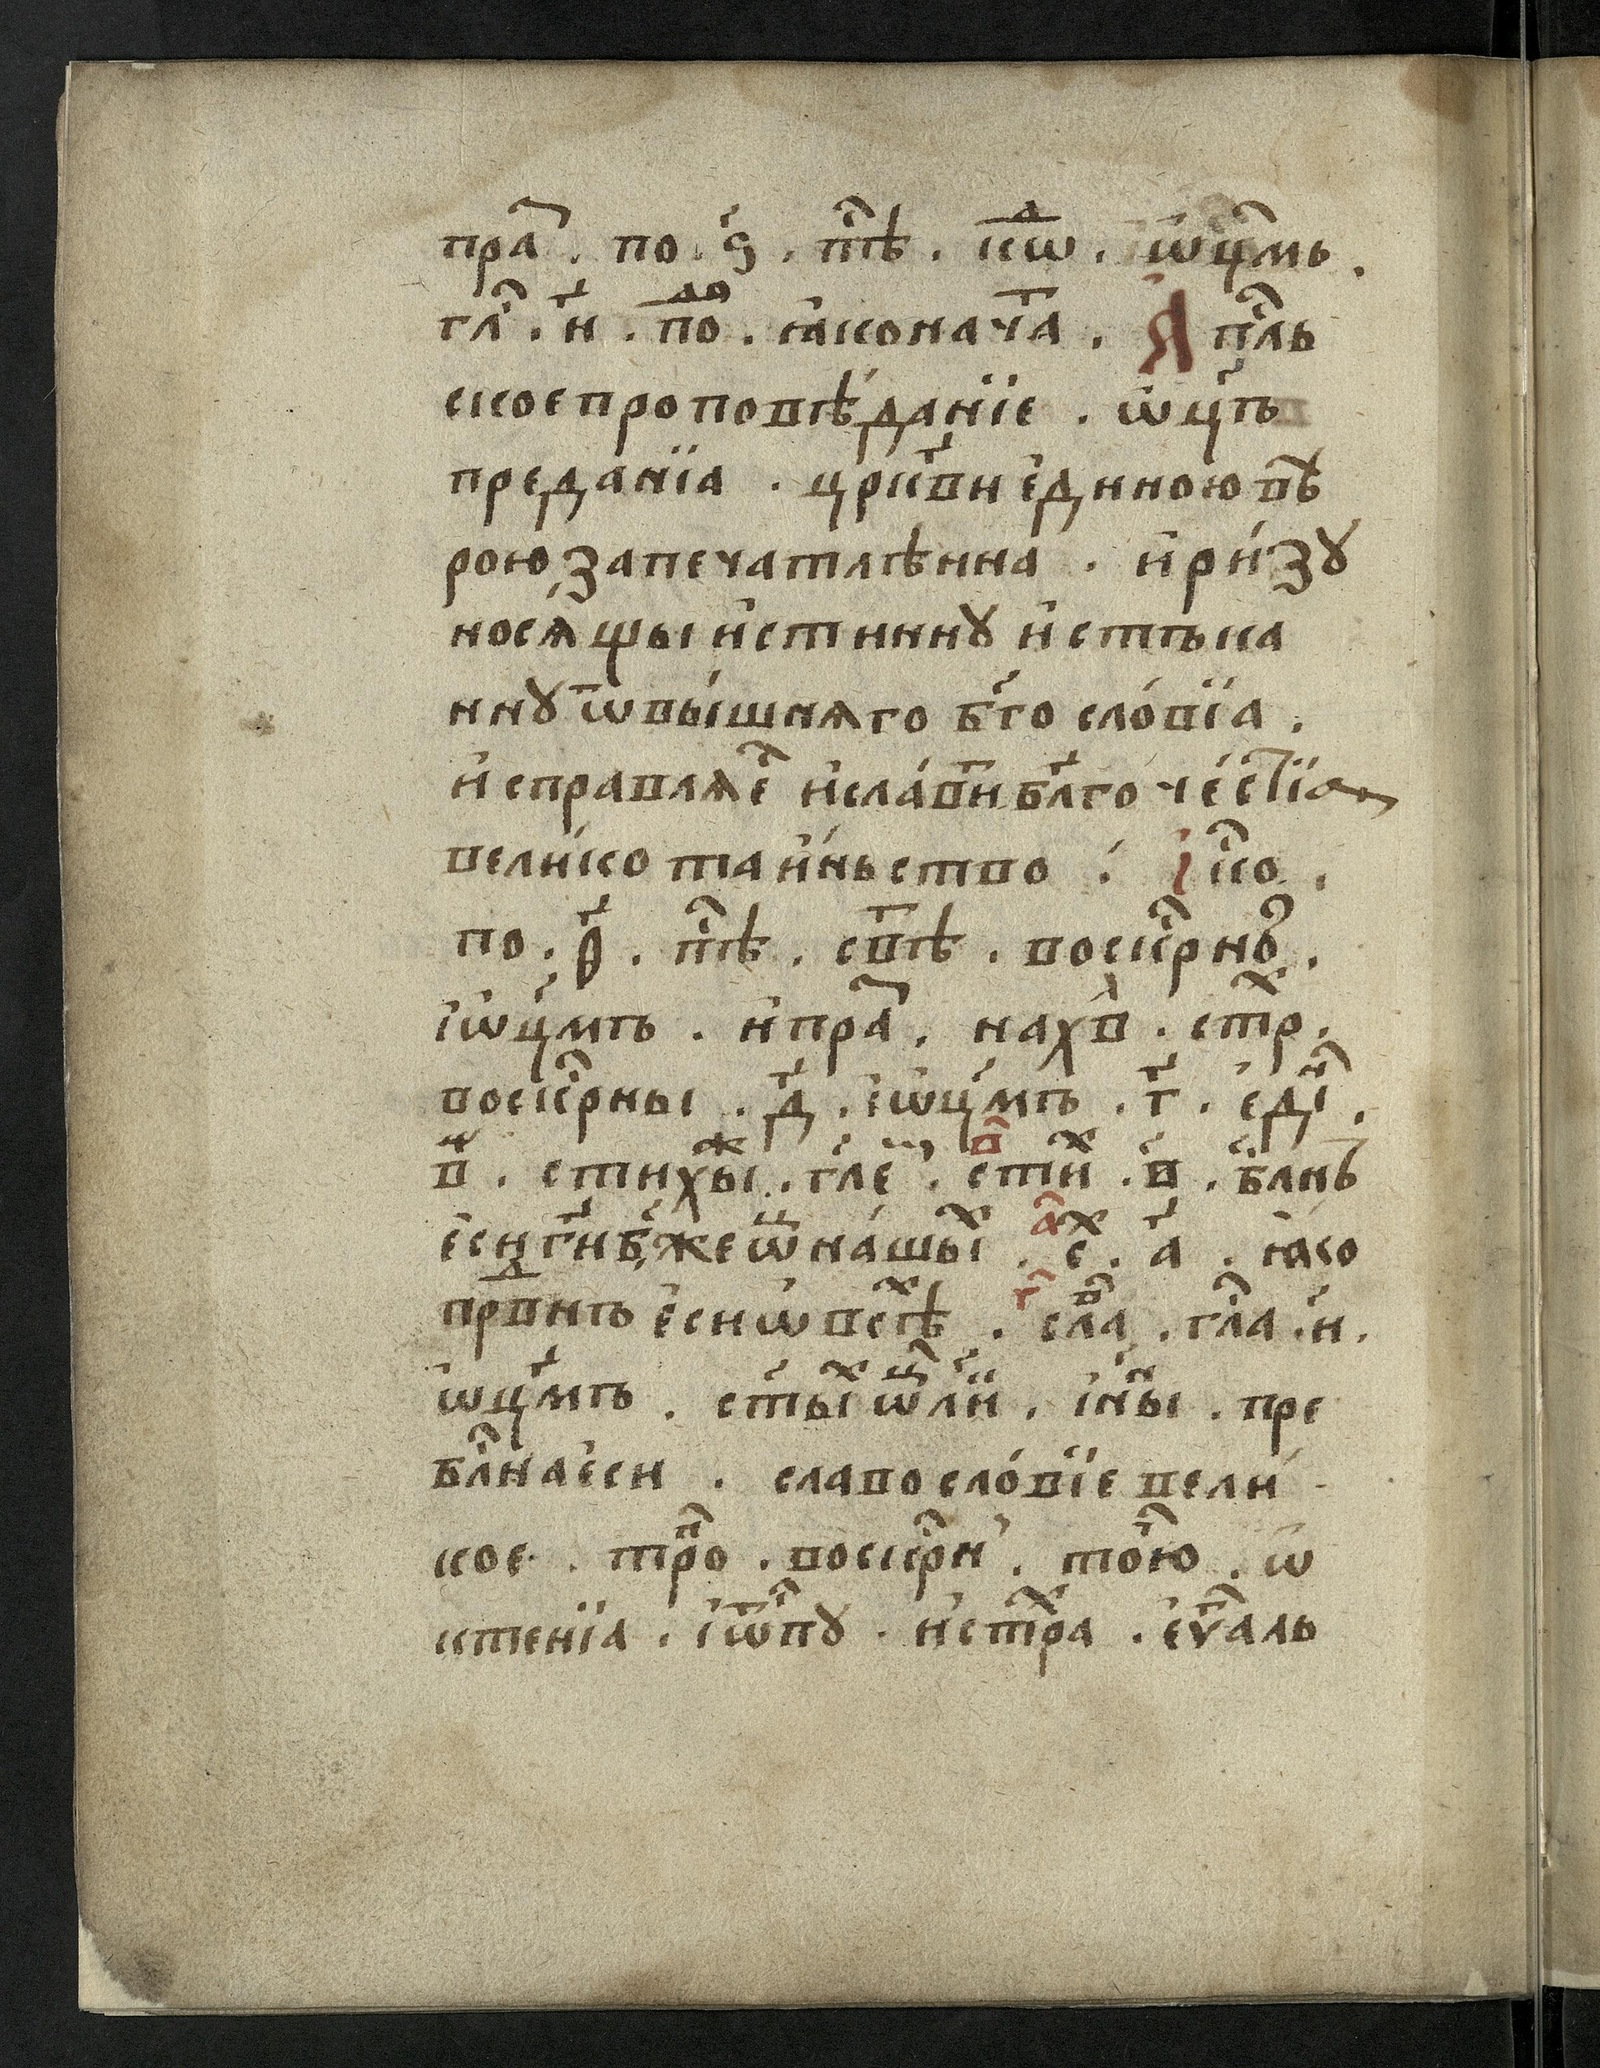 пра҇ . по . ѕ҃ . пѣ҇ . коⷣ . ѿц҃мъ .
гл҇ . и҃ . поⷣⷪ . ꙗконачⷭ҇а . Ап҇ль
скоепроповѣ́данїе . ѿц҃ъ
преданїа . цр҃кви е҆диною вѣ
рою запечатлѣнна . и҆ ри́зꙋ
нося́щы и҆стиннꙋ и҆стъка
ннꙋ ѿвы́шняго бг҃ословїа .
и҆справляе҇ и҆сла́витъ бл҃гоче́стїа
вели́ко та́иньство . І҆ко .
по . ѳ҃ . пѣ҇ . свѣⷮ . воскр҇нꙋ .
і҆ѿц҃мъ . и҆ пра҇ . на хва . стрⷯ .
воскр҇ны . д҃ . і҆ѿц҃мъ . г҃ . е҆ді҇ .
в҃ . стихⷤы . гл҃е . стиⷯ . в҃ . бл҃нъ
е҆си гд҃и бж҃е ѿц на́шыⷯ . сⷯ . а҃ . ꙗко
првⷣнъ е҆си ѡ҆ всѣⷯ . слаⷡ . гл҇а . и҃ .
ѿц҃мъ . ст҃ыⷯ ѿцⷧи . і҆ны . пре
бл҃на е҆си . славосло́вїе вели́
кое . трⷪ҇ . воскр҇н . то҇ю . ѡ҆
ктенїа . і҆ ѿпꙋ҇ . и҆ стрⷯа . е҆ѵ҇аль